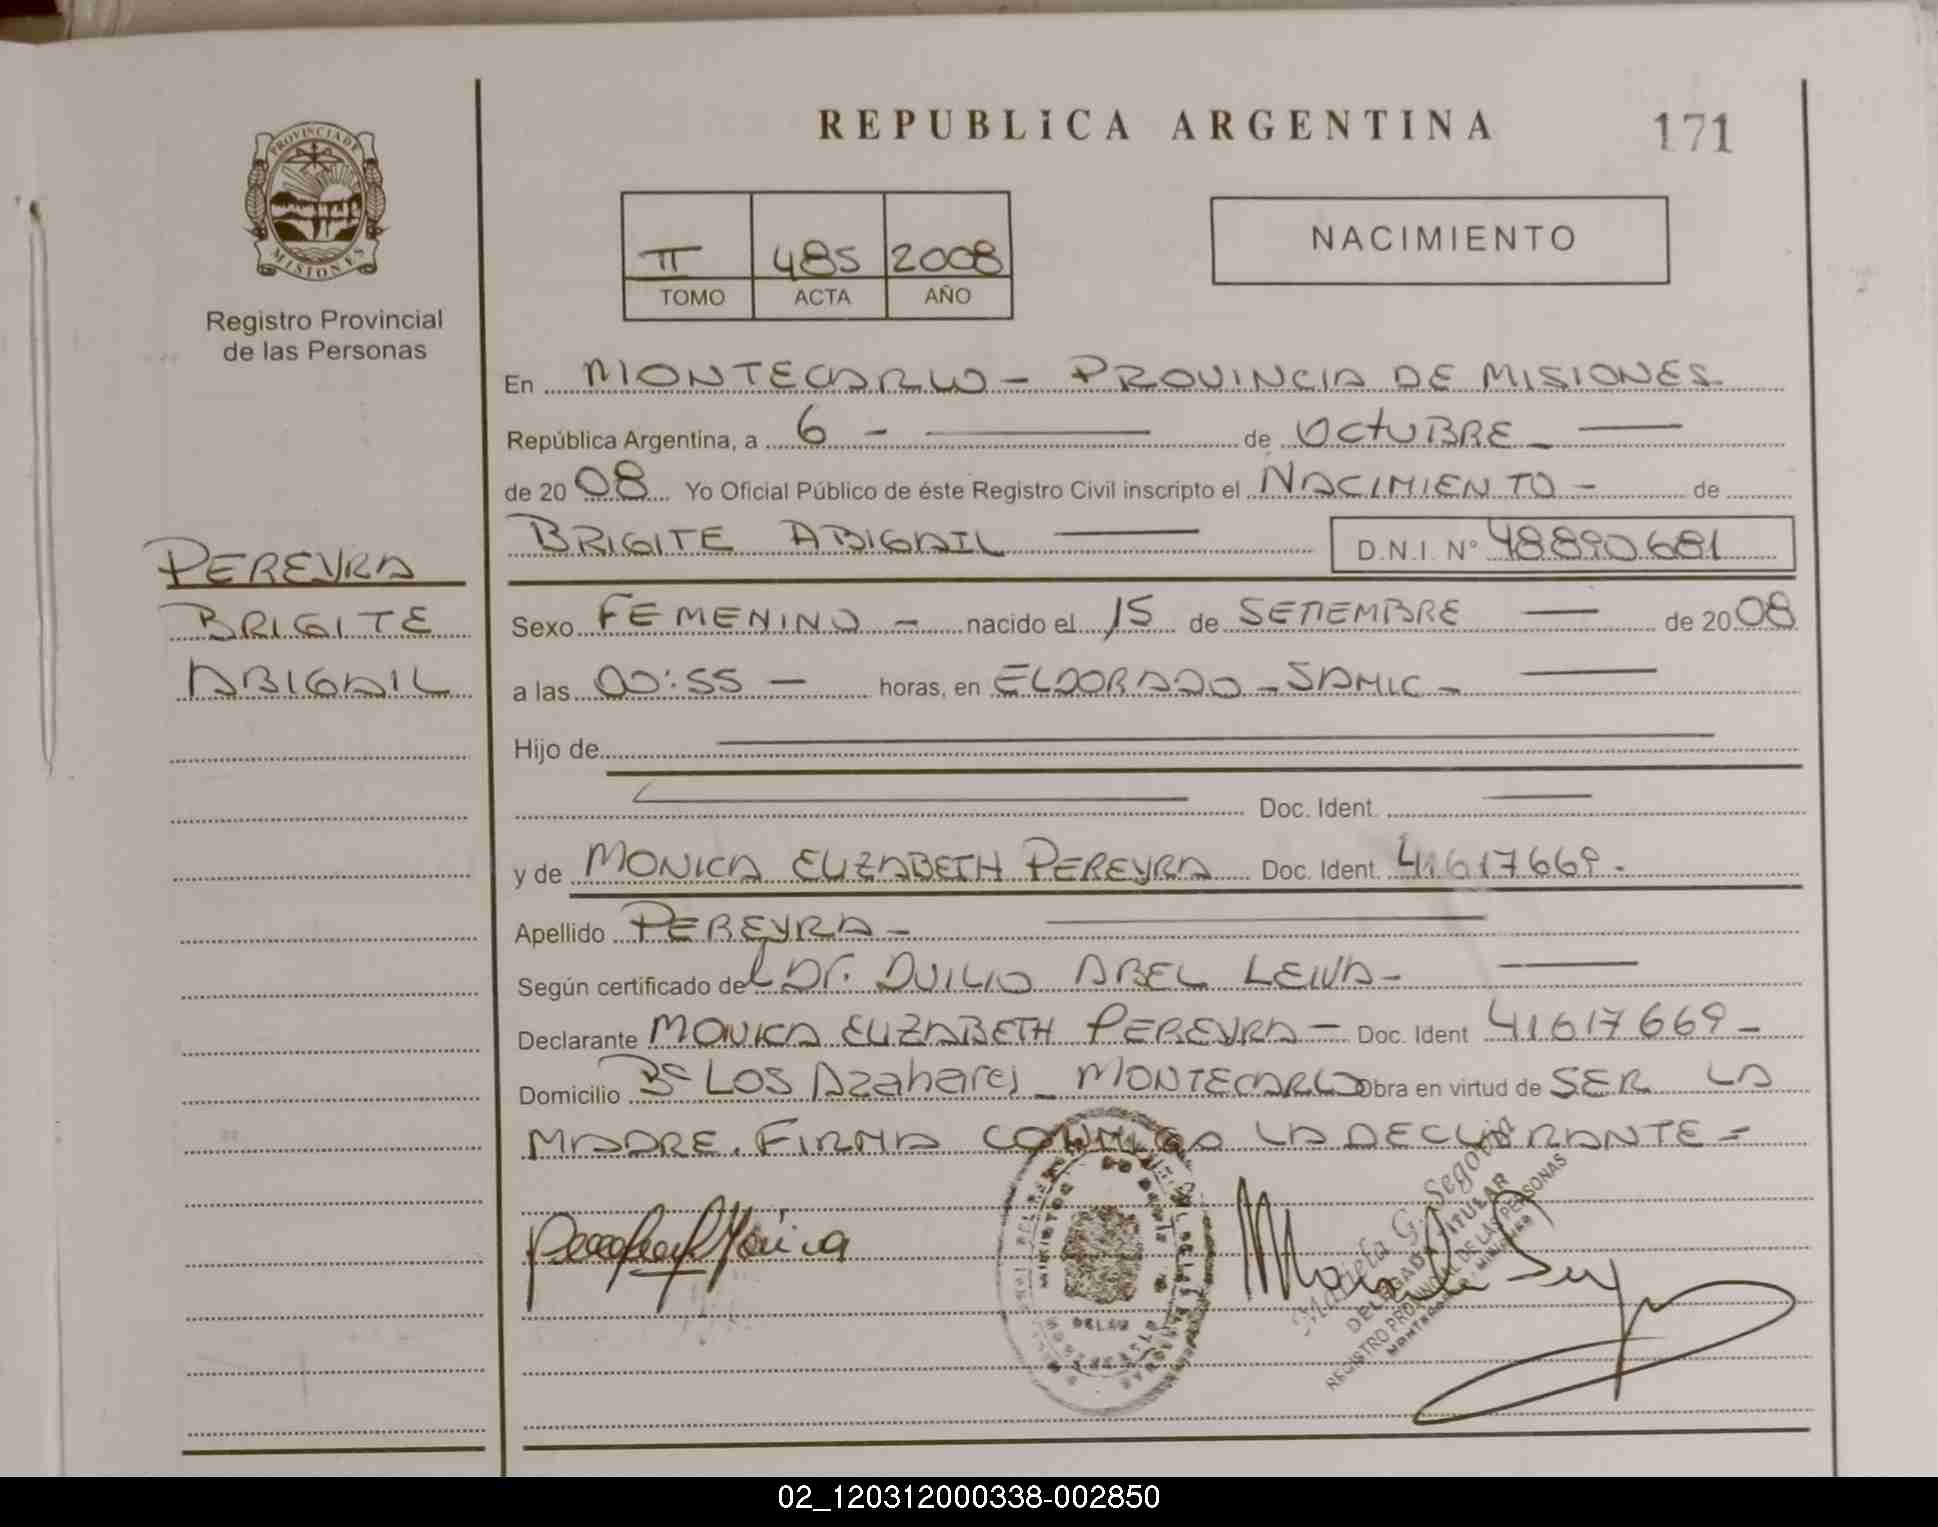 REPUBLICA ARGENTINA
171
PROVINCIA DE
MISIONES
Registro Provincial
de las Personas
II 485 2008
TOMO ACTA AÑO
NACIMIENTO
En MONTECARLO - PROVINCIA DE MISIONES
República Argentina, a 6 - de OCTUBRE -
de 2008 Yo Oficial Público de éste Registro Civil inscripto el NACIMIENTO - de
BRIGITE ABIGAIL D.N.I. N° 48890681
PEREYRA
BRIGITE
ABIGAIL
Sexo FEMENINO - nacido el 15 de SETIEMBRE de 2008
a las 00:55 - horas, en ELDORADO - SAMIC -
Hijo de
Doc. Ident.
y de MONICA ELIZABETH PEREYRA Doc. Ident. 41617669.
Apellido PEREYRA -
Según certificado del Dr. DUILIO ABEL LEIVA -
Declarante MONICA ELIZABETH PEREYRA - Doc. Ident 41617669 -
Domicilio B° LOS Azahares - MONTECARLO Obra en virtud de SER LA
MADRE. FIRMA CONMIGO LA DECLARANTE =
Mónica
Mariela G. Segovia
DELEGADA TITULAR
REGISTRO PROVINCIAL DE LAS PERSONAS
02_120312000338-002850